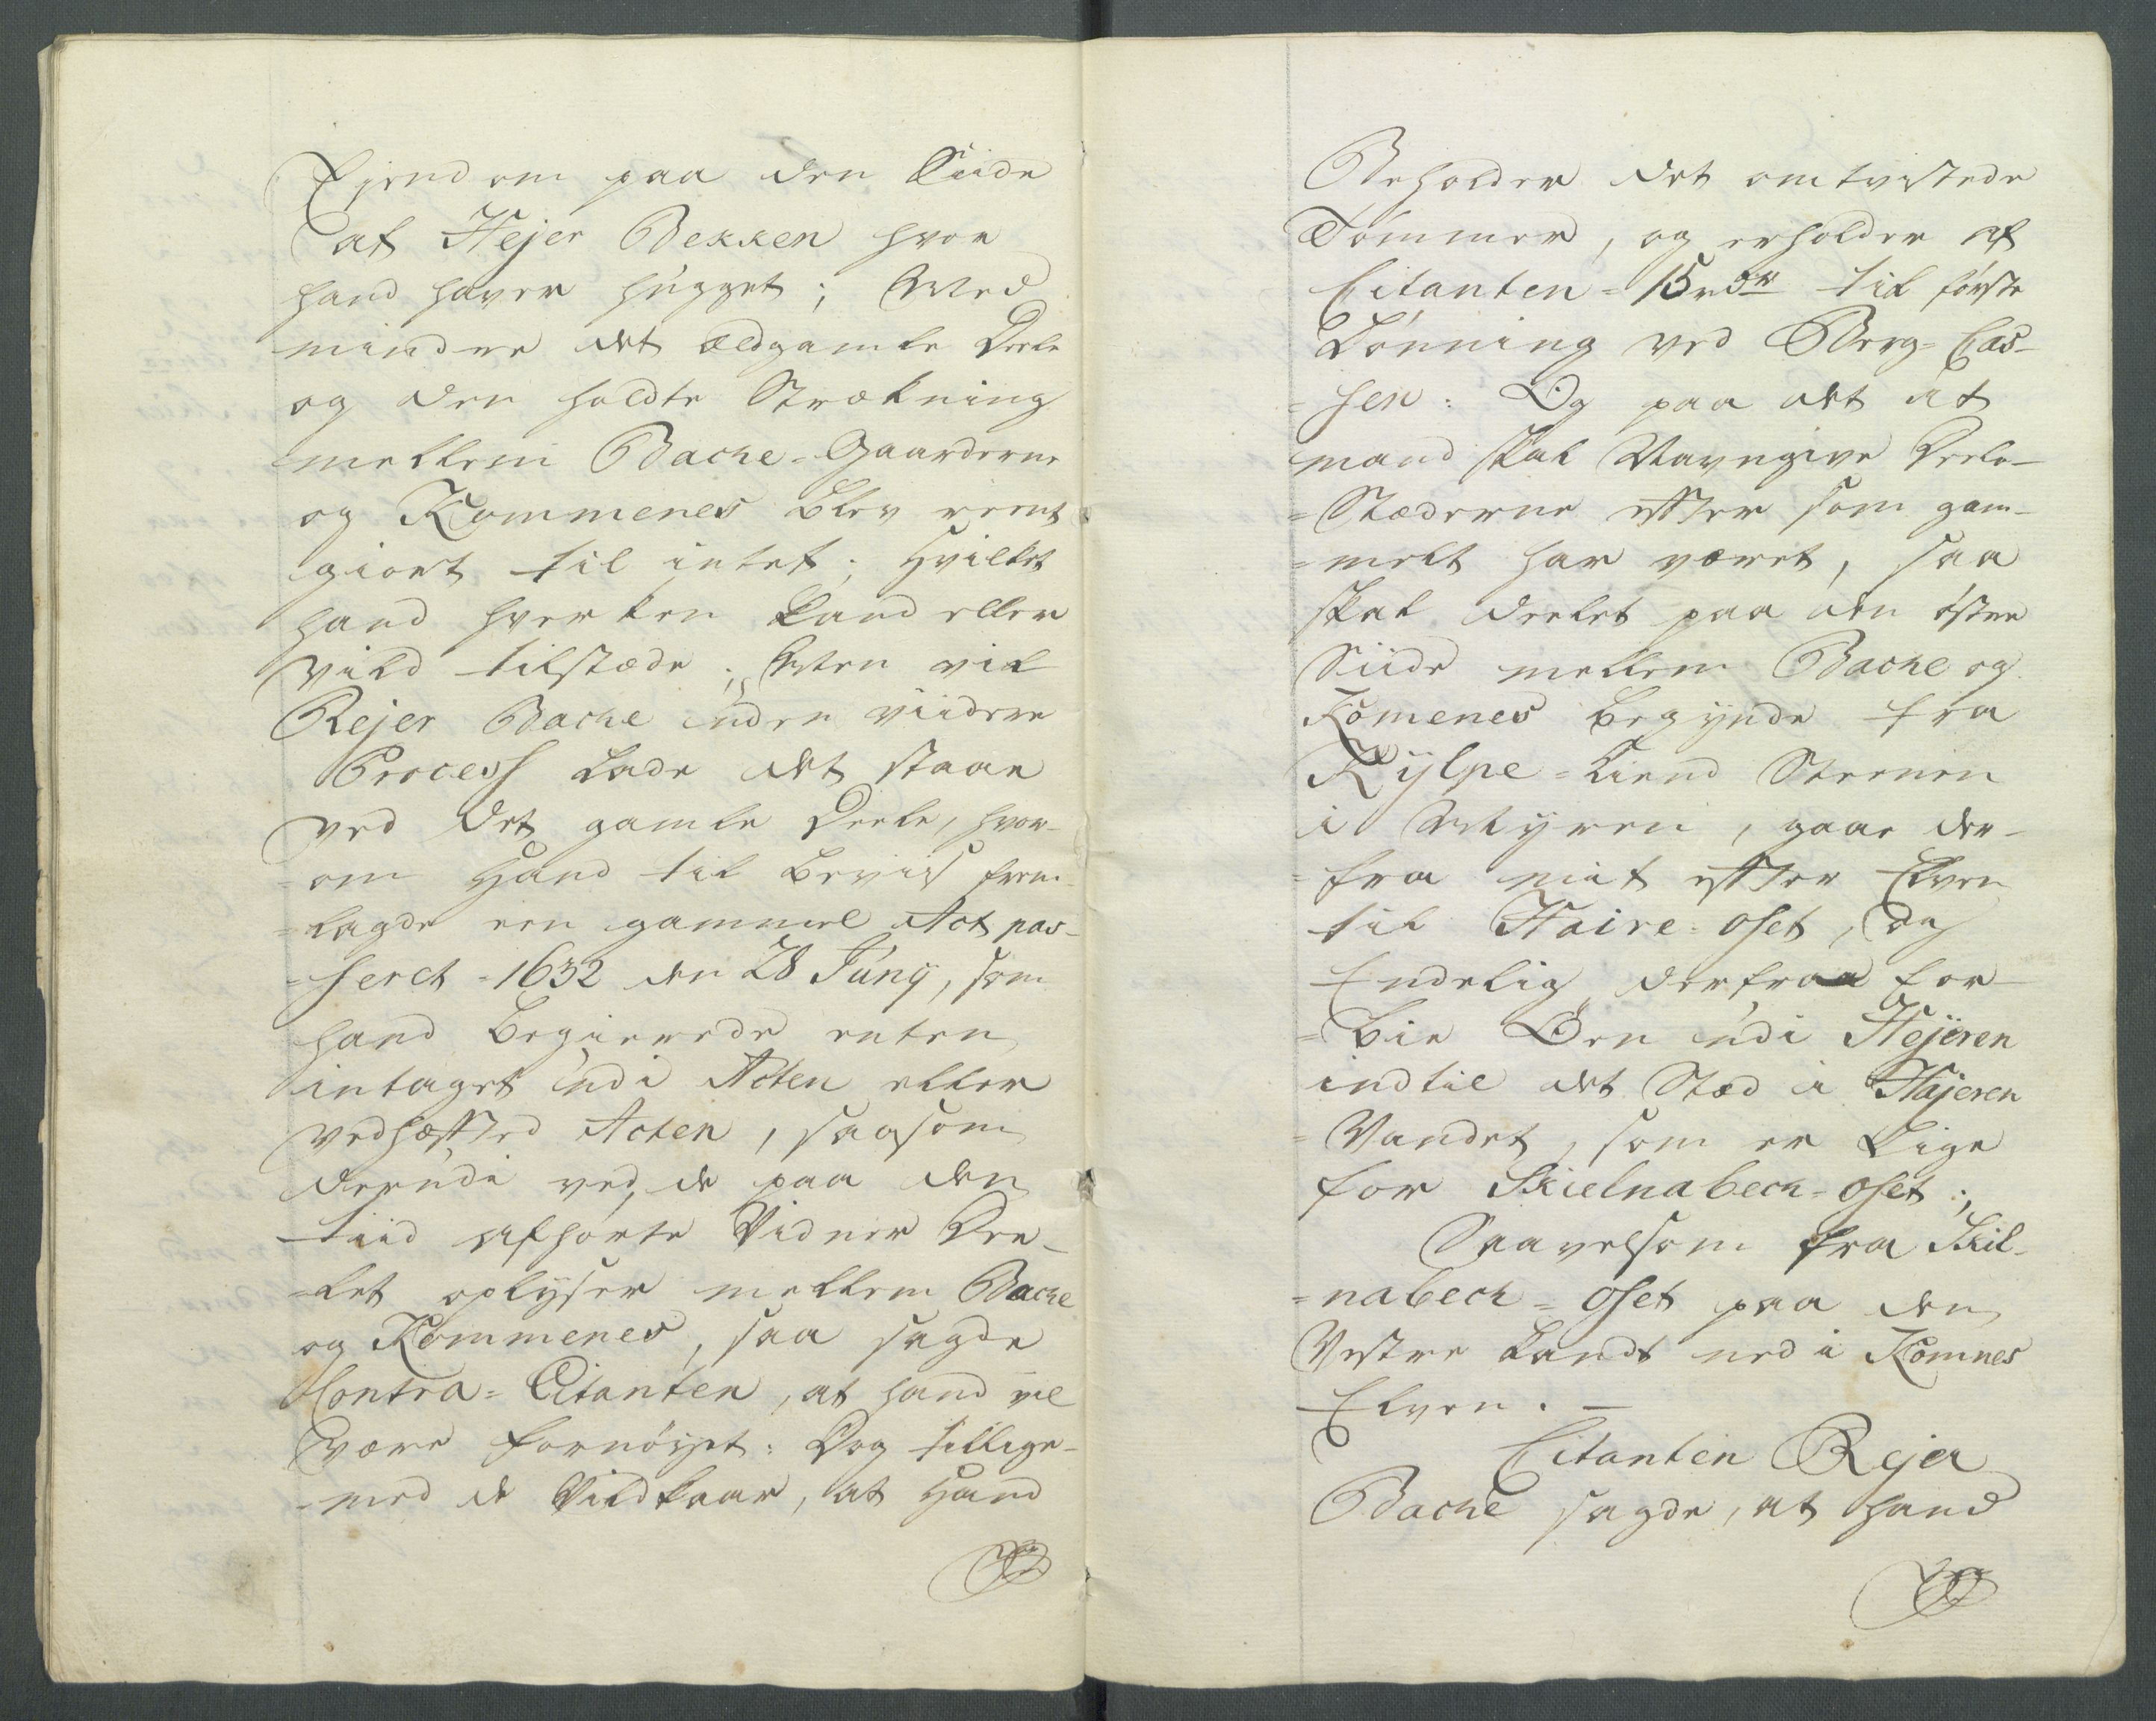 Ejendom paa den Siide
af Hejer Bekken hvor
hand haver húgget; Med
mindre det ældgamle Deele
og den holdte Strækning
mellem Bache-Gaarderne
og Kommenes blev reent
giort til intet; Hvilket
hand hverken kand eller
vild tilstæde; Men vil
Rejer Bache úden viidere
Process lade det staae
ved det gamle Deele, hvor-
=om Hand til beviis frem-
=lagde een gammel Act pas-
=seret = 1632 den 28 Júny, som
hand begierede enten
intaget údi Acten eller
vedhæfted Acten, saasom
derúdi ved de paa den
tiid afhørte Vidner Dee-
=let oplyser mellem Bache
og Kommenes, saa sagde
Contra=Citanten, at hand vil
være fornøyet: Dog tillige-
=med de Vildkaar, at Hand
Beholder det omtvistede
Tømmer, og erholder af
Citanten = 15 rdr til første
Lønning ved Berg-Cas-
=sen: Og paa det at
mand skal Navngive Deele-
=Stæderne efter som gam-
=melt har været, saa
skal deelet paa den østre
Siide mellem Bache og
Komenes begynde fra
Kylpe=Kiend Steenen
i Myren, gaar der-
=fra mit efter Elven
til Haire=oset, og
Endelig derfraa for-
=bie Øen údi Hejeren
indtil det Stæd i Hajeren
=Vandet, som er Lige
for Skielnabech=oset;
Saavelsom fra Skil-
=nabech=oset paa den
Vestre Landt ned i Komnes
Elven. —
Citanten Rejer
Bache sagde, at hand